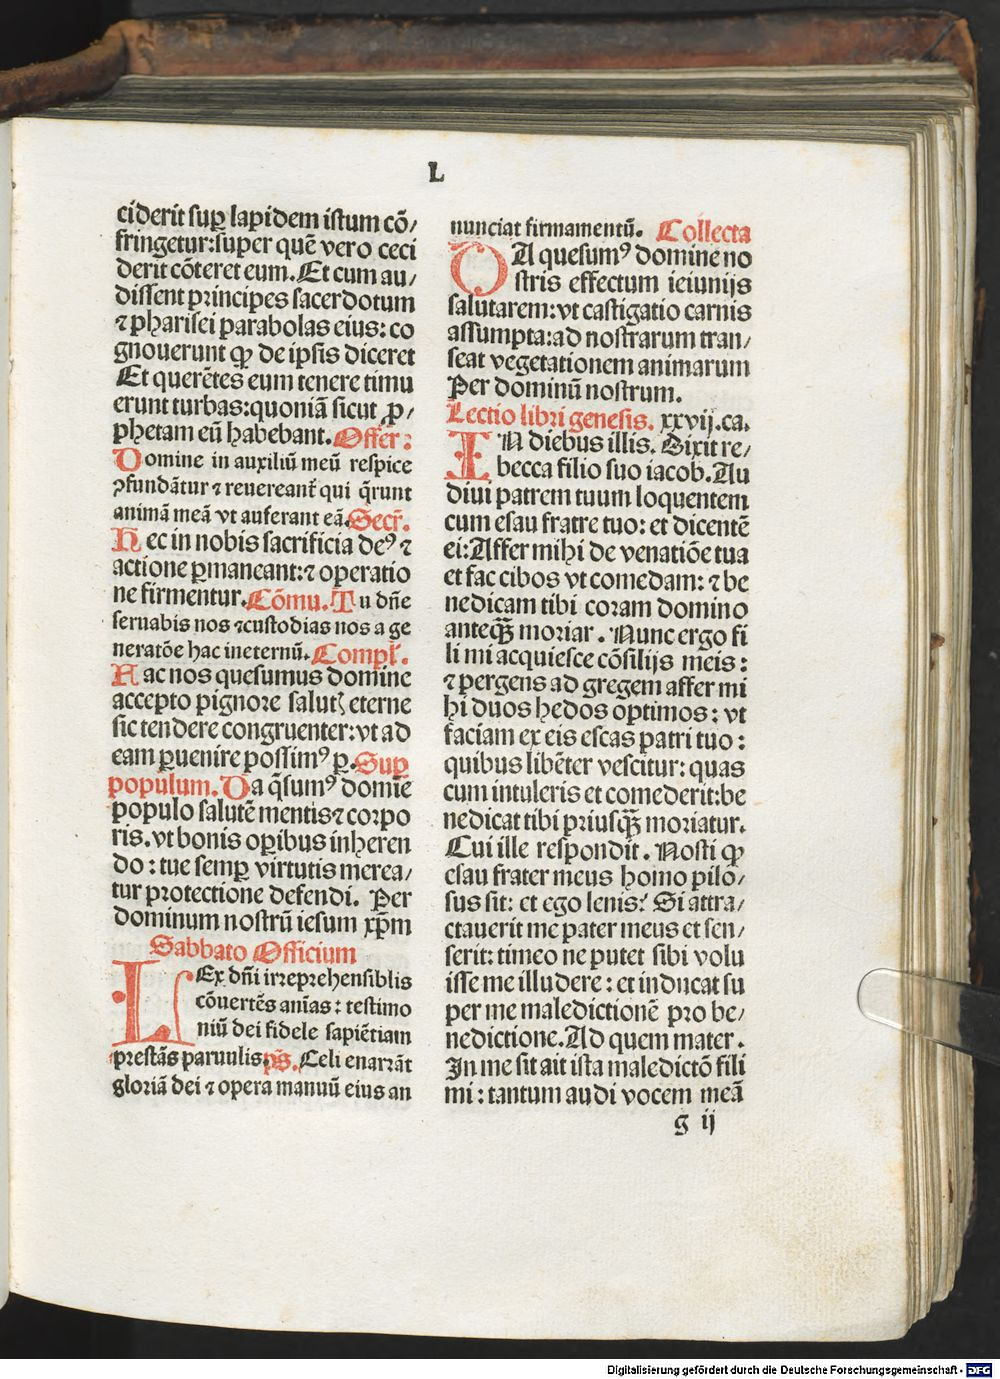 L
ciderit suꝑ lapidem istum cõ/
fringetur:super quẽ vero ceci
derit cõteret eum. Et cum au/
dissent principes sacerdotum
⁊ pharisei parabolas eius: co
gnouerunt ꝙ de ipsis diceret
Et querẽtes eum tenere timu
erunt turbas:quoniã sicut ꝓ/
phetam eũ habebant. Offer:
Domine in auxiliũ meũ respice
ꝯfundãtur ⁊ reuereant̃ qui q̃runt
animã meã vt auferant eã. Secr̃.
Hec in nobis sacrificia deꝰ ⁊
actione ꝑmaneant:⁊ operatio
ne firmentur. Cõmu. Tu dñe
seruabis nos ⁊custodias nos a ge
neratõe hac ineternũ. Compl̃.
Hac nos quesumus domine
accepto pignore salutꝭ eterne
sic tendere congruenter:vt ad
eam ꝑuenire possimꝰ ꝑ. Suꝑ
populum. Da q̃sumꝰ domĩe
populo salutẽ mentis⁊ corpo
ris. vt bonis oꝑibus inheren
do: tue semꝑ virtutis merea/
tur protectione defendi. Per
dominum nostrũ iesum xp̃m
Sabbato Officium
LEx dñi irreprehensiblis
cõuertẽs anĩas: testimo
niũ dei fidele sapiẽtiam
prestãs paruulis p̃s. Celi enarrãt
gloriã dei ⁊ opera manuũ eius an
nunciat firmamentũ. Collecta
DA quesumꝰ domine no
stris effectum ieiunijs
salutarem:vt castigatio carnis
assumpta:ad nostrarum tran/
seat vegetationem animarum
Per dominũ nostrum.
Lectio libri genesis. xxvij.ca.
IN diebus illis. Dixit re/
becca filio suo iacob. Au
diui patrem tuum loquentem
cum esau fratre tuo: et dicentẽ
ei: Affer mihi de venatiõe tua
et fac cibos vt comedam: ⁊ be
nedicam tibi coram domino
anteq̃ꝫ moriar. Nunc ergo fi
li mi acquiesce cõsilijs meis:
⁊ pergens ad gregem affer mi
hi duos hedos optimos: vt
faciam ex eis escas patri tuo:
quibus libẽter vescitur: quas
cum intuleris et comederit:be
nedicat tibi priusq̃ꝫ moriatur.
Cui ille respondit. Nosti ꝙ
esau frater meus homo pilo/
sus sit: et ego lenis: Si attra/
ctauerit me pater meus et sen/
serit: timeo ne putet sibi volu
isse me illudere: et inducat su
per me maledictionẽ pro be/
nedictione. Ad quem mater.
In me sit ait ista maledictõ fili
mi: tantum audi vocem meã
g ij
Digitalisierung gefördert durch die Deutsche Forschungsgemeinschaft - DFG